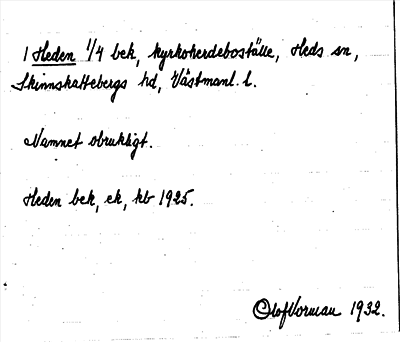 1 Heden 1/4 bek, kyrkoherdeboställe, Heds sn,
Skinnskattebergs hd, Västmanl. l.
Namnet obrukligt.
Heden bek, ek, kb 1925.
Olof Vorman 1932.